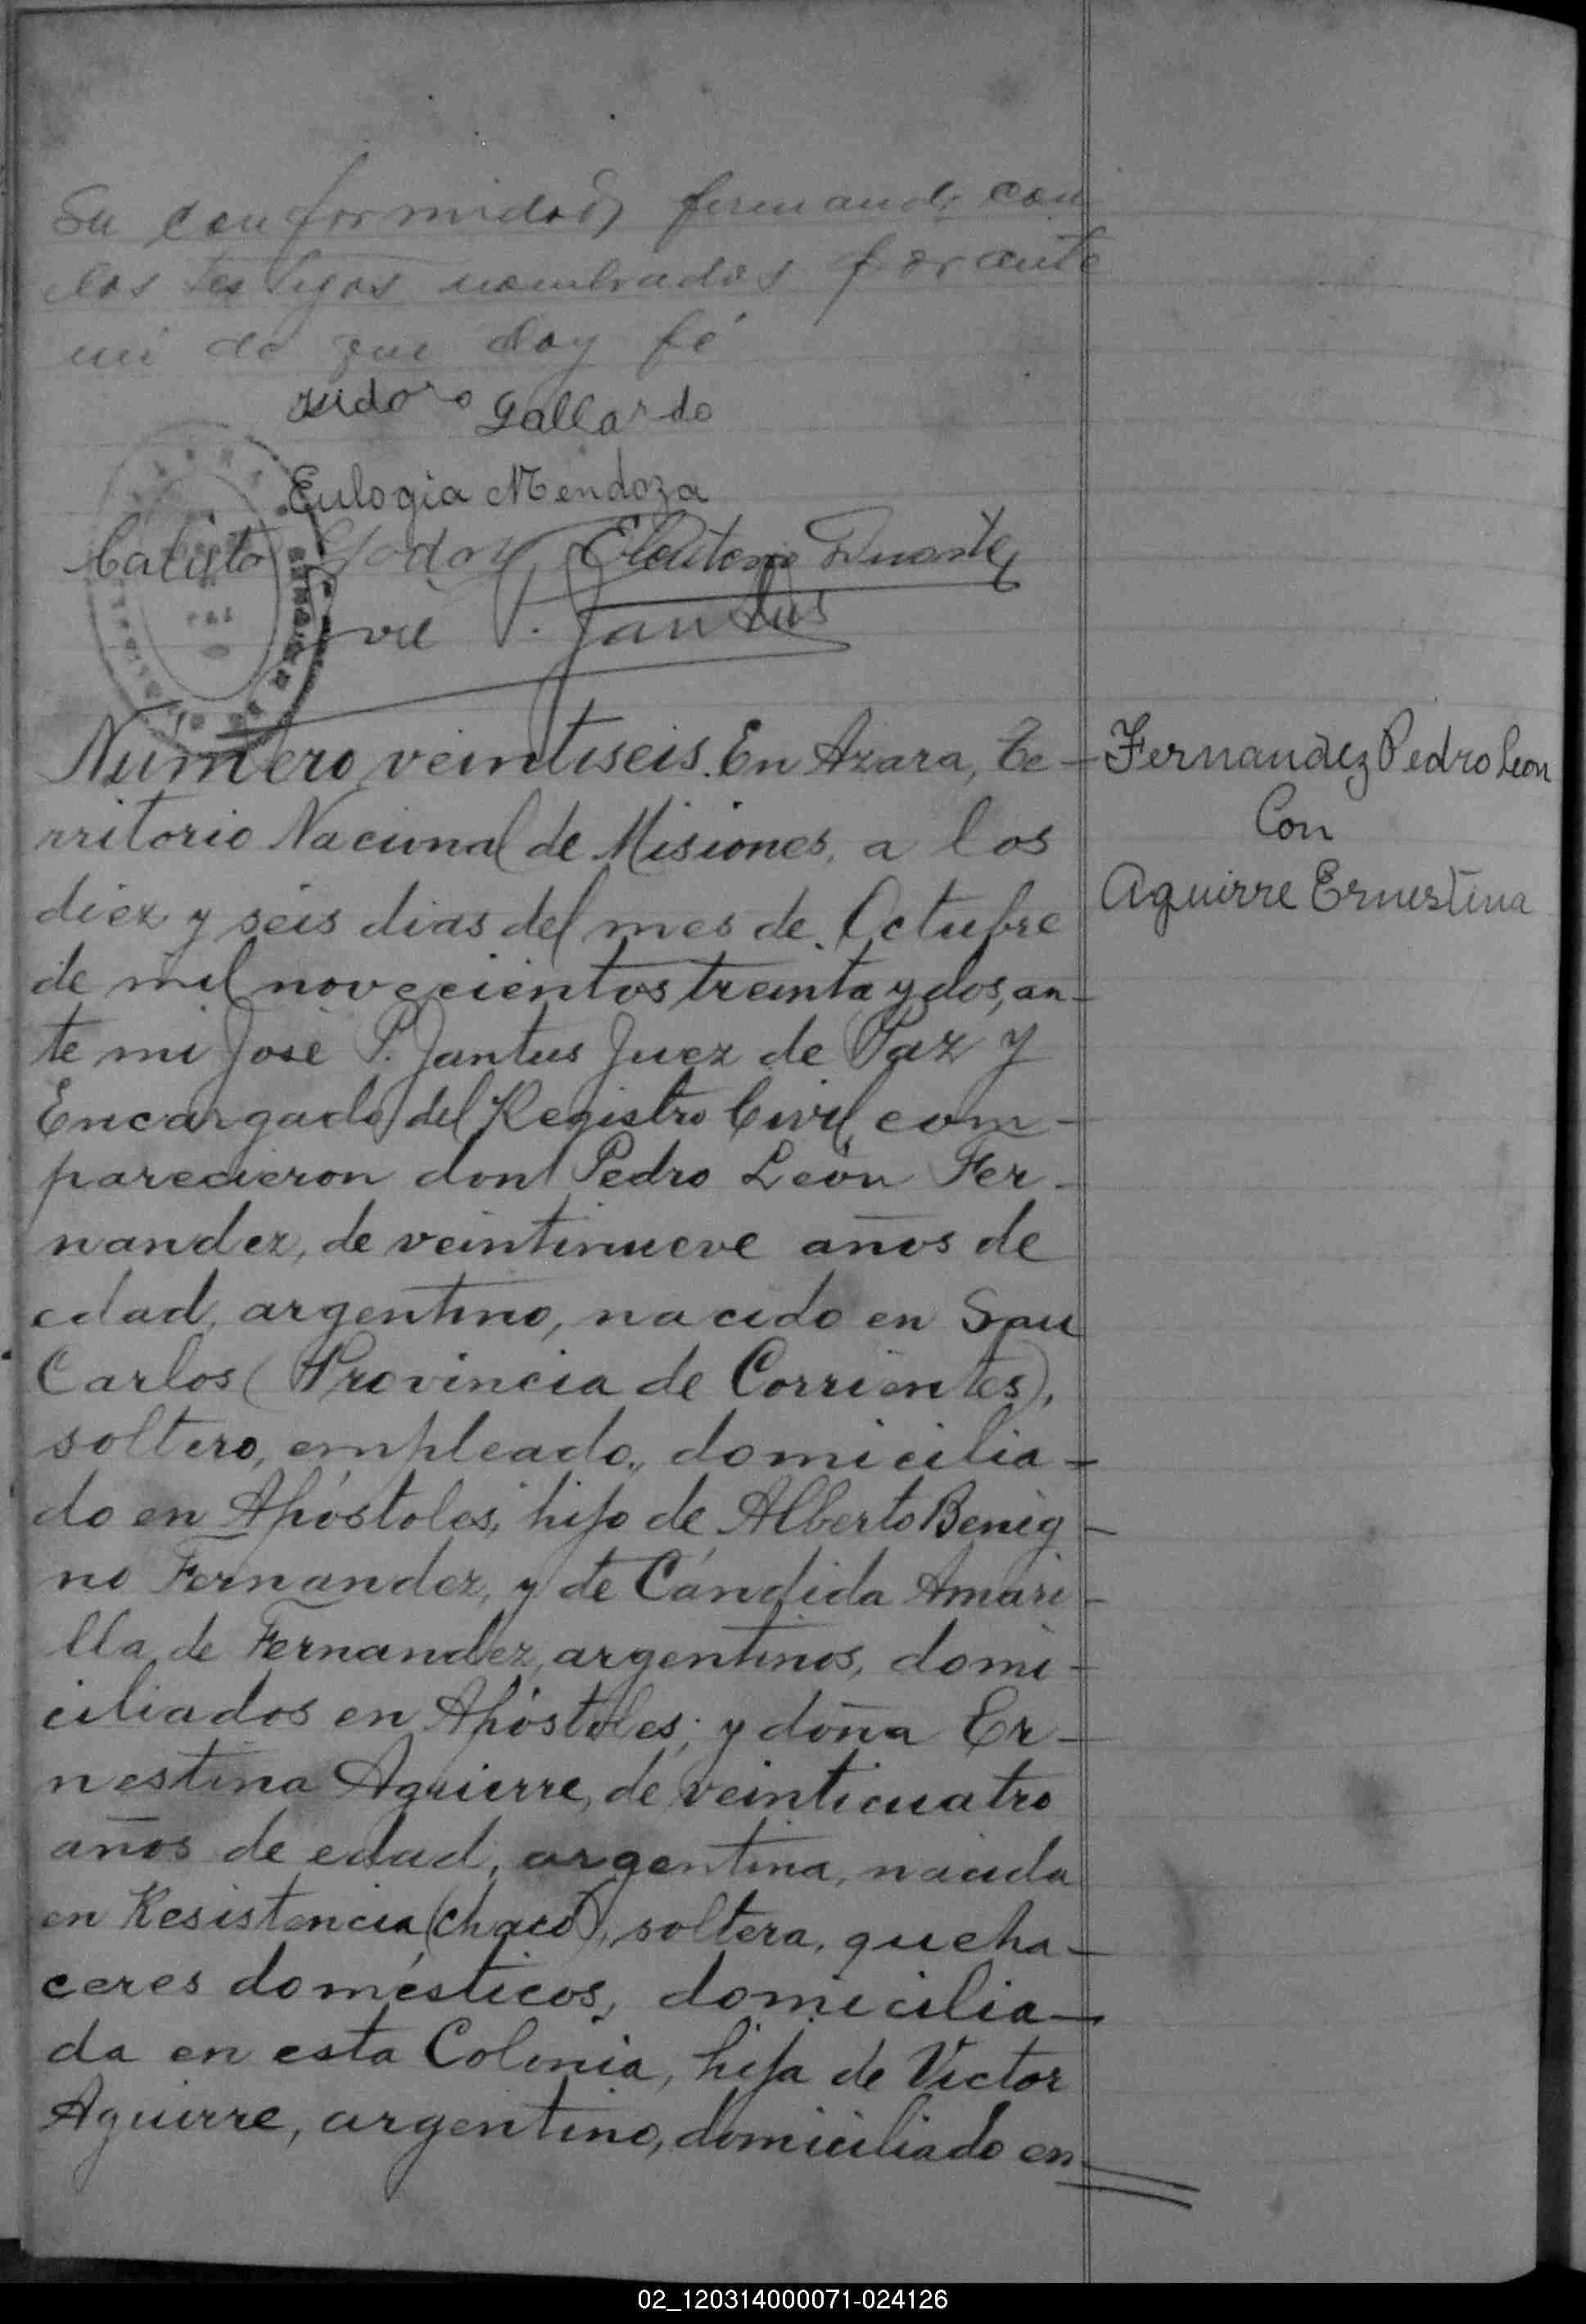 Su conformidad, firmando con
los testigos nombrados por ante
mi de que doy fé
Isidoro Gallardo
Eulogia Mendoza
Calisto Godoy Eleuterio Duarte
José P. Jantus
Número veintiseis. En Azara, Te-
rritorio Nacional de Misiones, a los
diez y seis dias del mes de Octubre
de mil novecientos treinta y dos, an-
te mi José P. Jantus Juez de Paz y
Encargado del Registro Civil, com-
parecieron don Pedro León Fer-
nandez, de veintinueve años de
edad, argentino, nacido en San
Carlos (Provincia de Corrientes),
soltero, empleado, domicilia-
do en Apóstoles, hijo de Alberto Benig-
no Fernandez, y de Cándida Amari-
lla de Fernandez, argentinos, domi-
ciliados en Apóstoles; y doña Er-
nestina Aguirre, de veinticuatro
años de edad, argentina, nacida
en Resistencia (Chaco), soltera, queha-
ceres domésticos, domicilia-
da en esta Colonia, hija de Victor
Aguirre, argentino, domiciliado en
Fernandez Pedro Leon
Con
Aguirre Ernestina
02_120314000071-024126